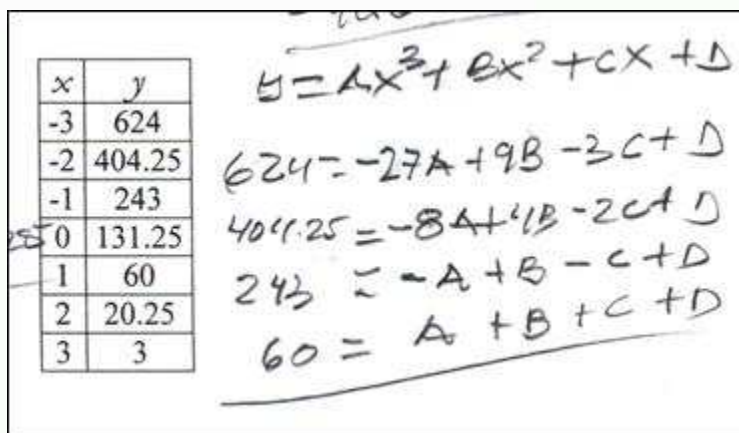 x y
-3 624
-2 404.25
-1 243
0 131.25
1 60
2 20.25
3 3
y=Ax³+Bx²+CX+D
624=-27A+9B-3C+D
404.25=-8A+4B-2C+D
243=-A+B-C+D
60=A+B+C+D